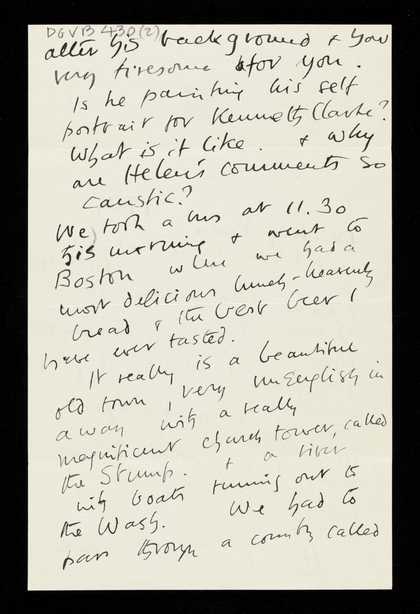 DGVB 430(2)
alter his background & how
very tiresome for you.
Is he painting his self
portrait for Kenneth Clark?
What is it like. & why
are Helen's comments so
caustic?
We took a bus at 11.30
this morning & went to
Boston where we had a
most delicious lunch – heavenly
bread & the best beer I
have ever tasted.
It really is a beautiful
old town, very unEnglish in
a way with a really
magnificent church tower, called
the Stump. & a river
with boats running out to
the Wash. We had to
pass through a country called